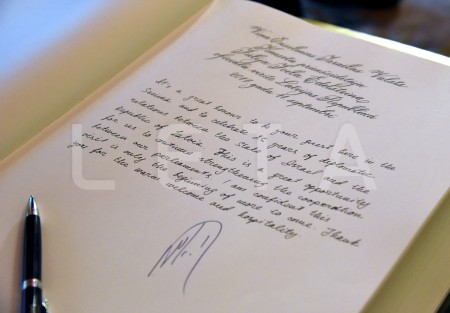 Knesseta priekšsēdētāja
Jūlija Joela Edelšteina
vizīte Latvijas Republikā
2017. gada septembris
It's a great honour to be your guest here in the
Saeima and to celebrate 25 years of diplomatic
relations between the State of Israel and the
Republic of Latvia. This is a great opportunity
for us to continue strengthening the cooperation
between our parliaments. I am confident this
visit is only the beginning of more to come. Thank
you for the warm welcome and hospitality.
LETA